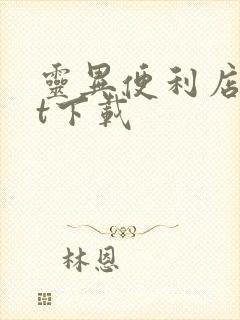 靈異便利店
t下載
林恩